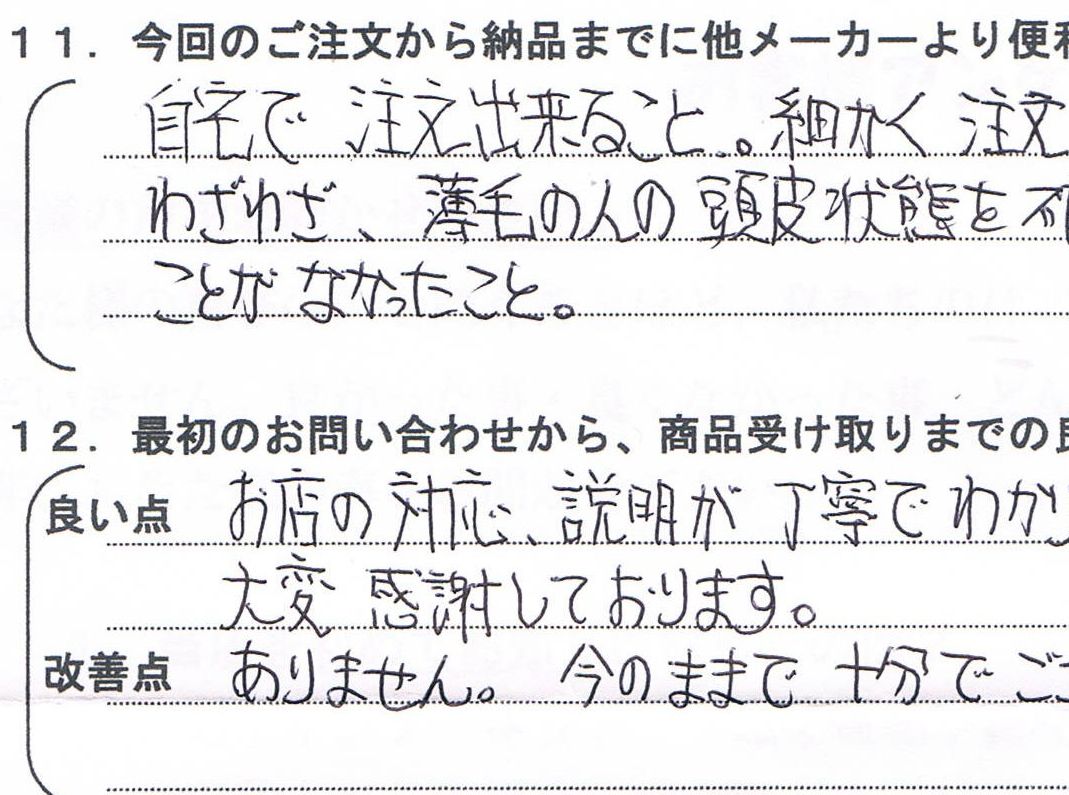 11. 今回のご注文から納品までに他メーカーより便利
自宅で 注文出来ること。細かく 注文
わざわざ、薄毛の人の 頭皮状態を 不
ことが なかったこと。
12. 最初のお問い合わせから、商品受け取りまでの良
良い点 お店の 対応、説明が 丁寧で わかり
大変 感謝しております。
改善点 ありません。 今のままで 十分で ござ